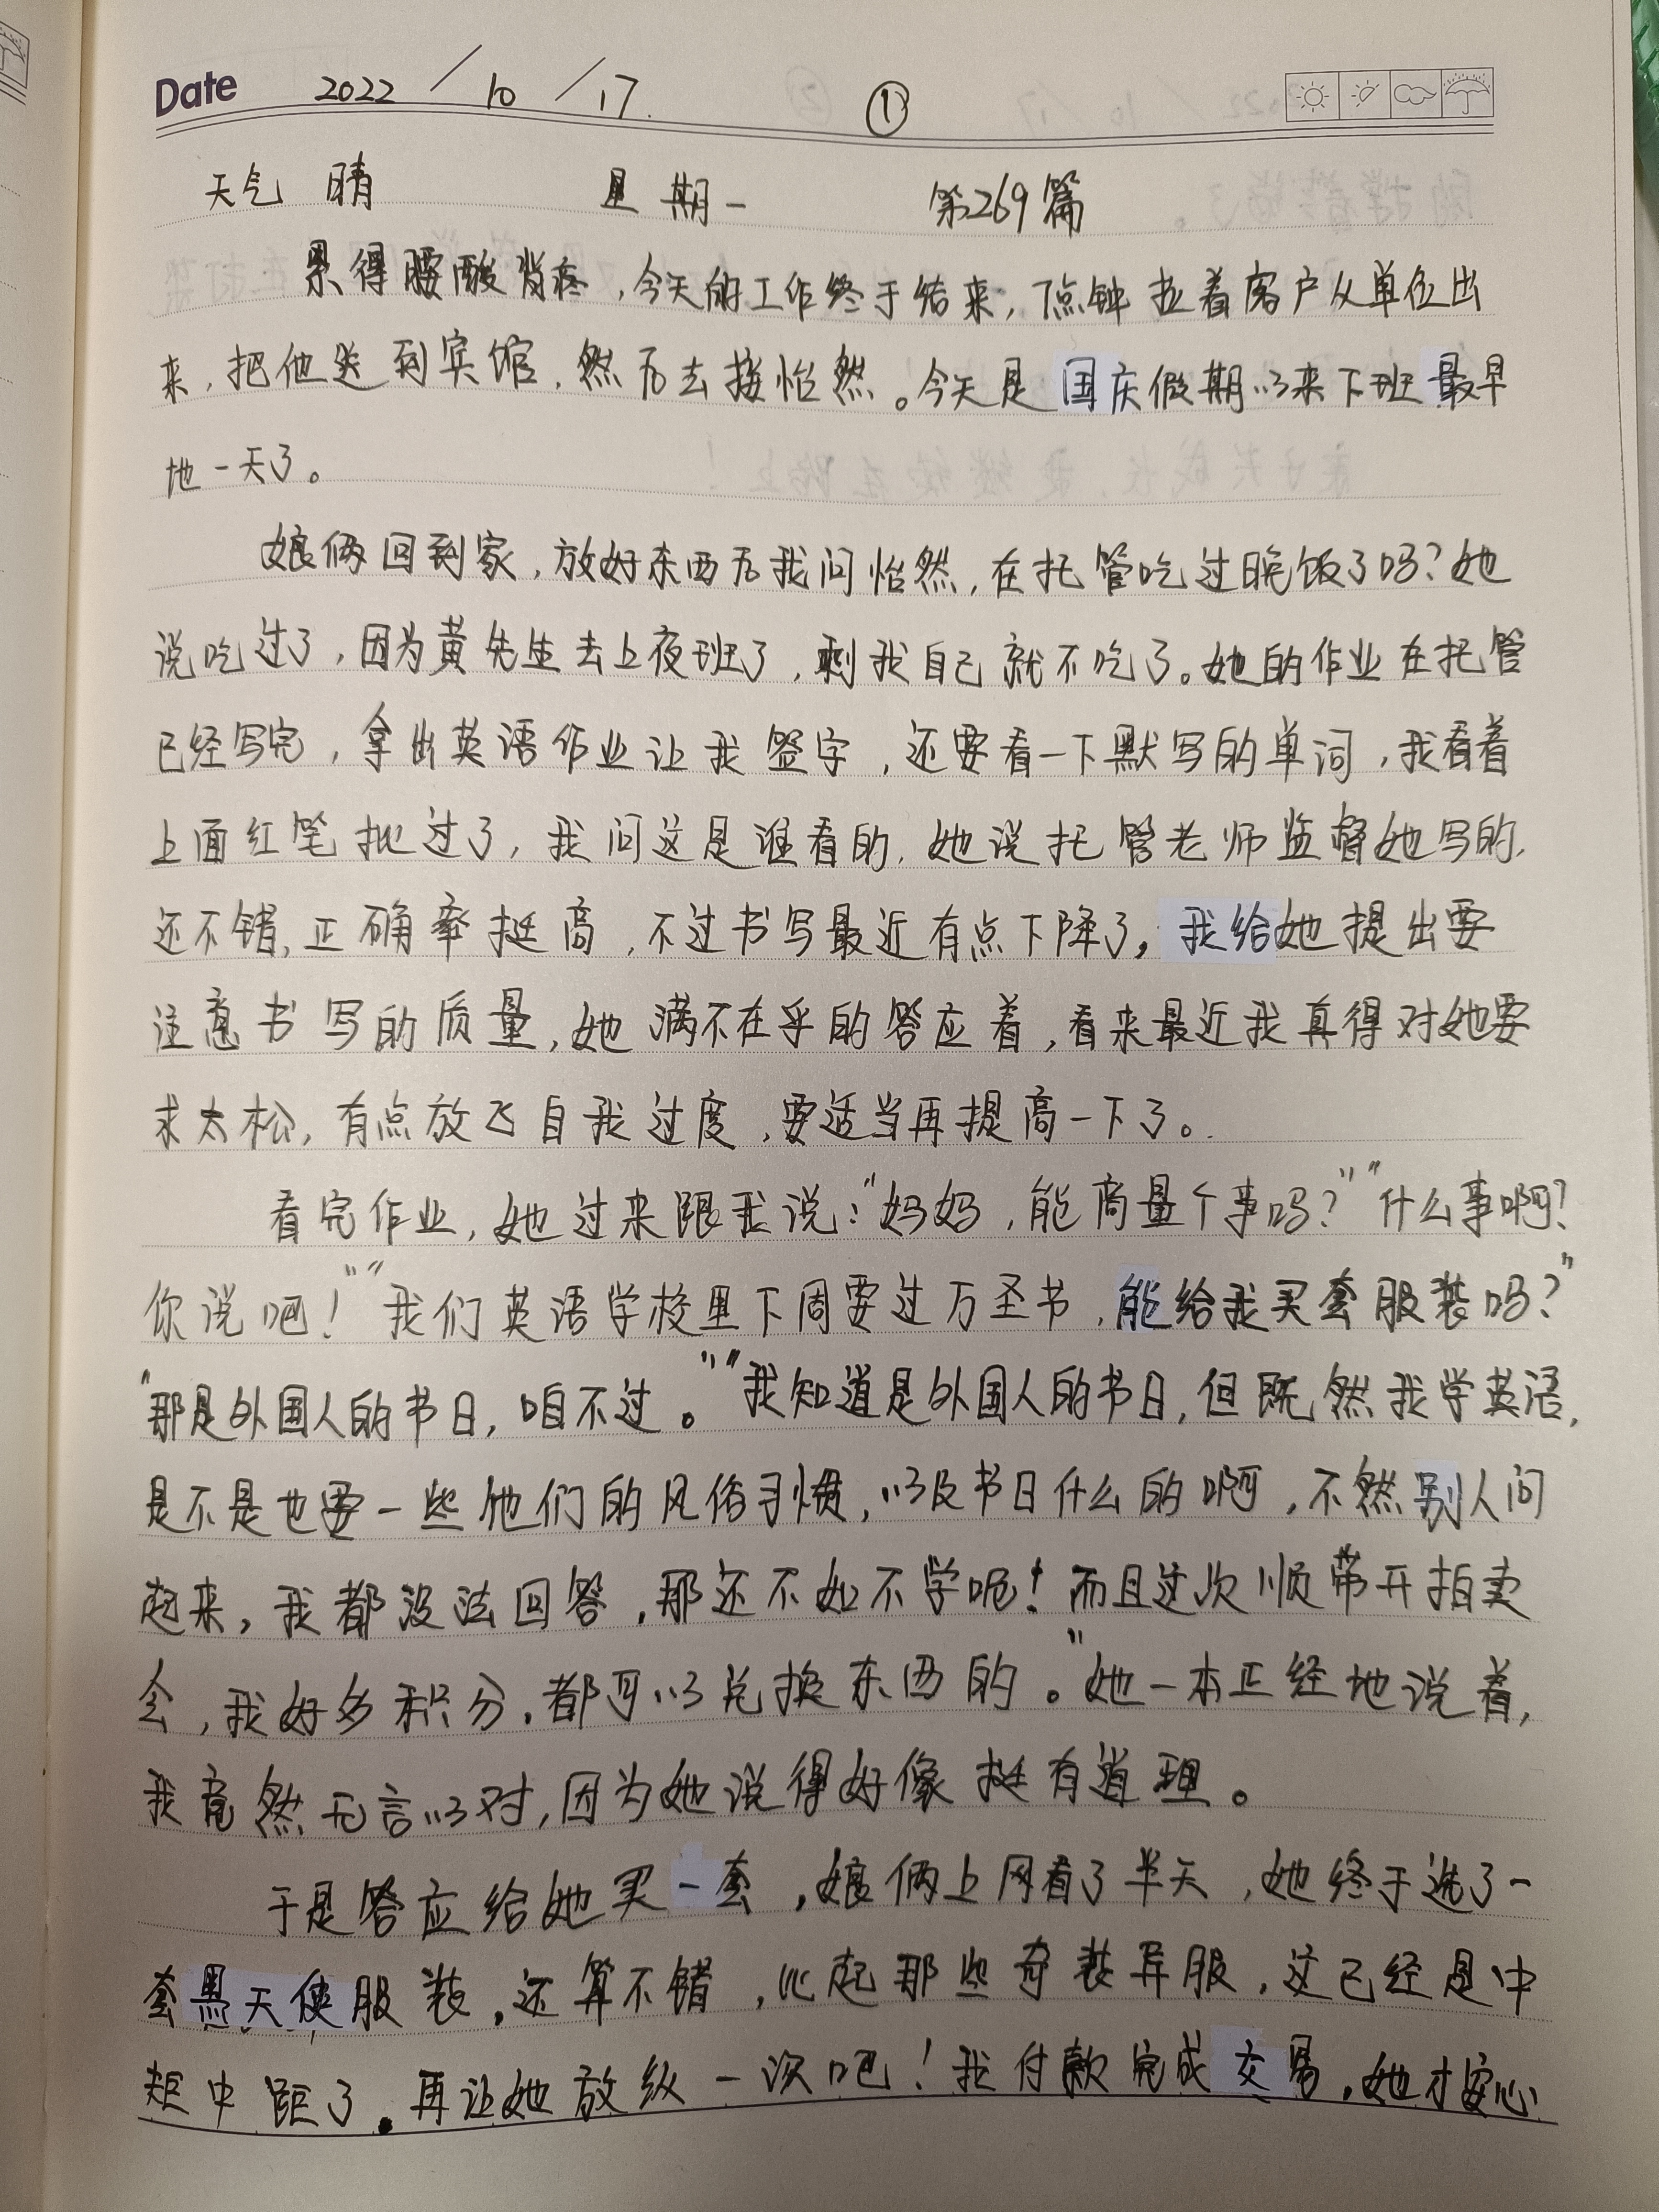 Date 2022 / 10 / 17. ①
天气 晴 星期一 第269篇
累得腰酸背疼，今天的工作终于结束，7点钟拉着客户从单位出
来，把他送到宾馆，然后去接怡然。今天是国庆假期以来下班最早
地一天了。
娘俩回到家，放好东西后我问怡然，在托管吃过晚饭了吗？她
说吃过了，因为黄先生去上夜班了，剩我自己就不吃了。她的作业在托管
已经写完，拿出英语作业让我签字，还要看一下默写的单词，我看着
上面红笔批过了，我问这是谁看的，她说托管老师监督她写的，
还不错，正确率挺高，不过书写最近有点下降了，我给她提出要
注意书写的质量，她满不在乎的答应着，看来最近我真得对她要
求太松，有点放飞自我过度，要适当再提高一下了。
看完作业，她过来跟我说：“妈妈，能商量个事吗？”“什么事啊？
你说吧！”“我们英语学校里下周要过万圣节，能给我买套服装吗？”
“那是外国人的节日，咱不过。”“我知道是外国人的节日，但既然我学英语，
是不是也要一些他们的风俗习惯，以及节日什么的啊，不然别人问
起来，我都没法回答，那还不如不学呢！而且这次顺带开拍卖
会，我好多积分，都可以兑换东西的。”她一本正经地说着，
我竟然无言以对，因为她说得好像挺有道理。
于是答应给她买一套，娘俩上网看了半天，她终于选了一
套黑天使服装，还算不错，比起那些奇装异服，这已经是中
矩中距了。再让她放纵一次吧！我付款完成交易，她才安心